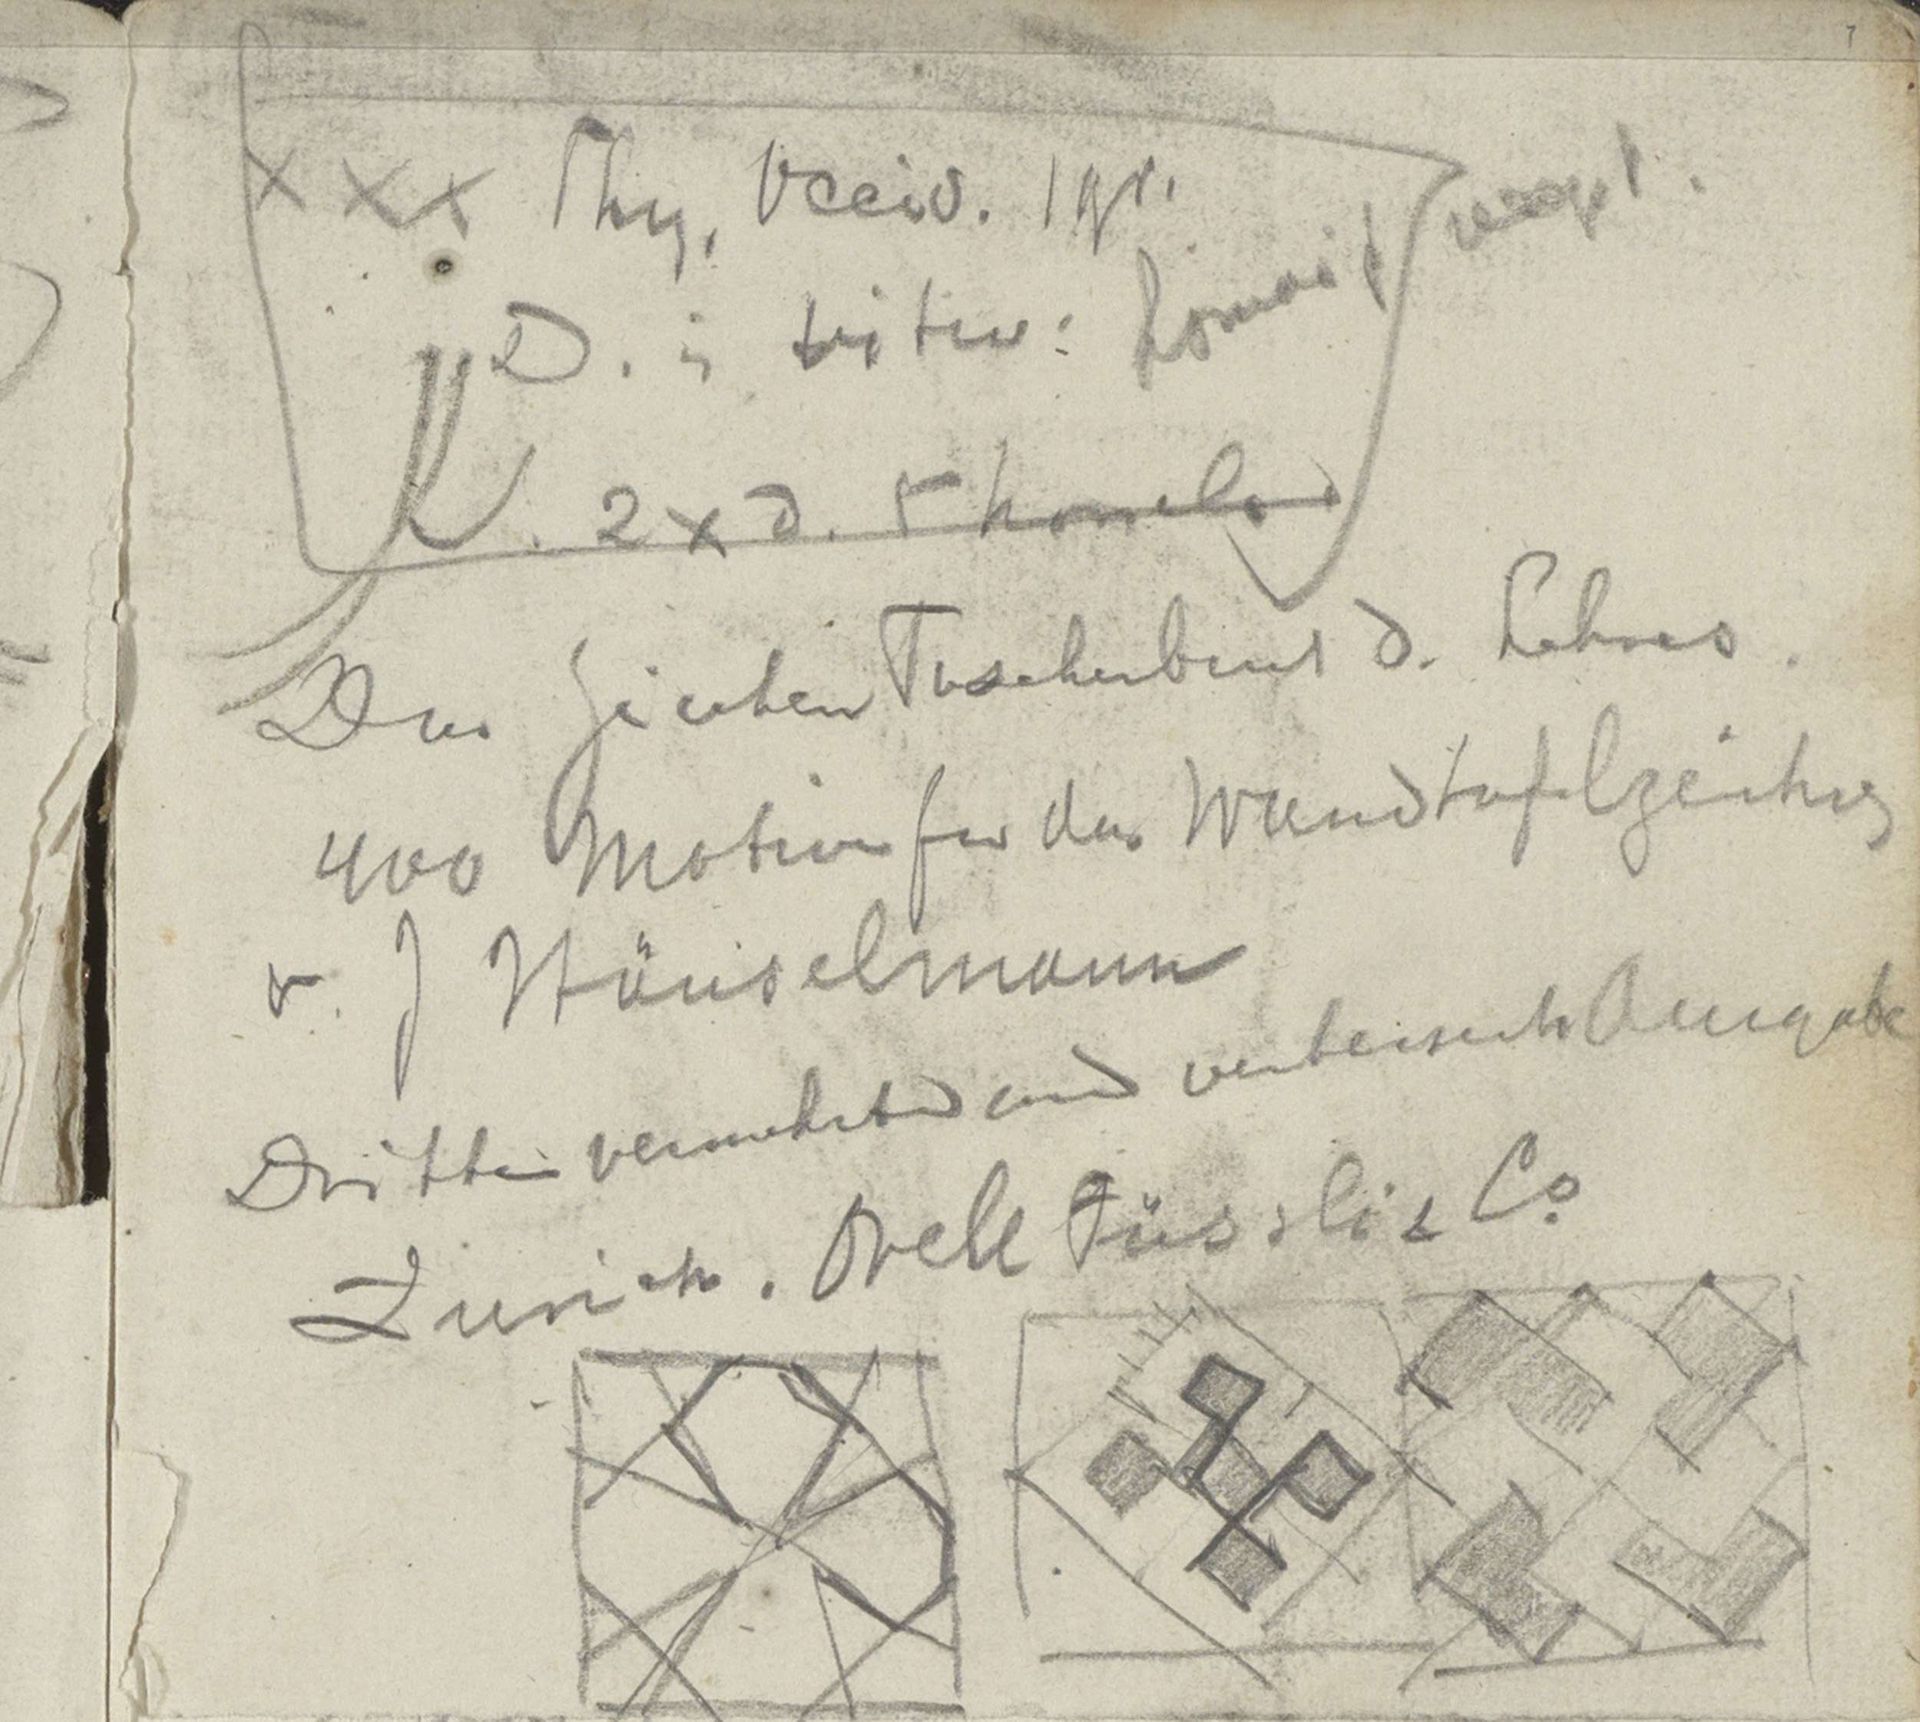 7
xxx Thy, Occid. 1 gr.
D. i
2 x d.
Das Zeichen Taschenbuch d. Lehres.
400 Motive für das Wandtafelzeichnen
v. J Häuselmann
Dritte vermehrte und verbesserte Ausgabe
Zürich. Orell Füssli & Co